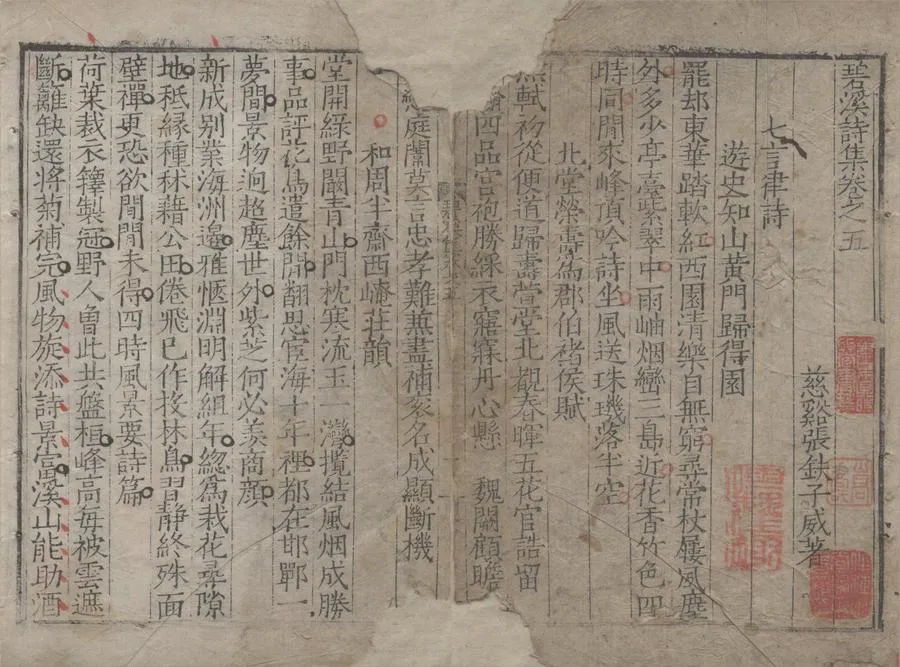 碧溪詩集卷之五
慈谿張鈇子威著
七言律詩
遊史知山黃門歸得園
罷却東華踏軟紅西園清樂自無窮尋常杖屨風塵
外多少亭臺紫翠中雨岫烟巒三島近花香竹色四
時同閒來峰頂吟詩坐風送珠璣落半空
北堂榮壽為郡伯褚侯賦
賦初從便道歸壽萱堂北觀春暉五花官誥留
四品宮袍勝綵衣寤寐丹心懸 魏闕顧瞻
庭闈莫言忠孝難兼盡補袞名成顯斷機
和周半齋西崦莊韻
堂開綠野闢青山門枕寒流玉一灣攬結風烟成勝
事品評花鳥遣餘閒翻思宦海十年裡都在邯鄲一
夢間景物逈超塵世外紫芝何必羨商顔
新成别業海洲邉雅愜淵明解組年緫為栽花尋隙
地秪緣種秫藉公田倦飛已作投林鳥習静終殊面
壁禪更恐欲閒閒未得四時風景要詩篇
荷葉裁衣籜製冠野人魯此共盤桓峰高每被雲遮
斷籬缺還將菊補完風物旋添詩景富溪山能助酒